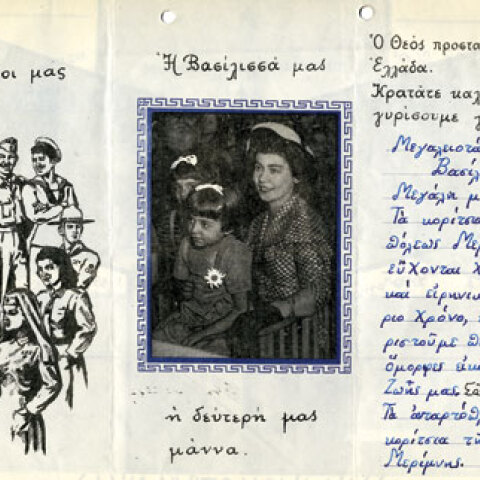 οι μας
Ἡ Βασίλισσά μας
ἡ δεύτερή μας
μάννα.
Ὁ Θεός προστα
Ἑλλάδα.
Κρατᾶτε καλ
γυρίσουμε γ
Μεγαλειοτά
Βασίλ
Μεγάλη μα
Τά κορίτσια
θόλεως Μερ
εὔχονται Χ
καί εἰρηνικ
ριο Χρόνο,
ριστοῦμε θε
ὄμορφες εἰκ
Ζωῆς μας. Σᾶ
Τά ἀπαρτόθ
κορίτσια τῆ
Μερίμνης.